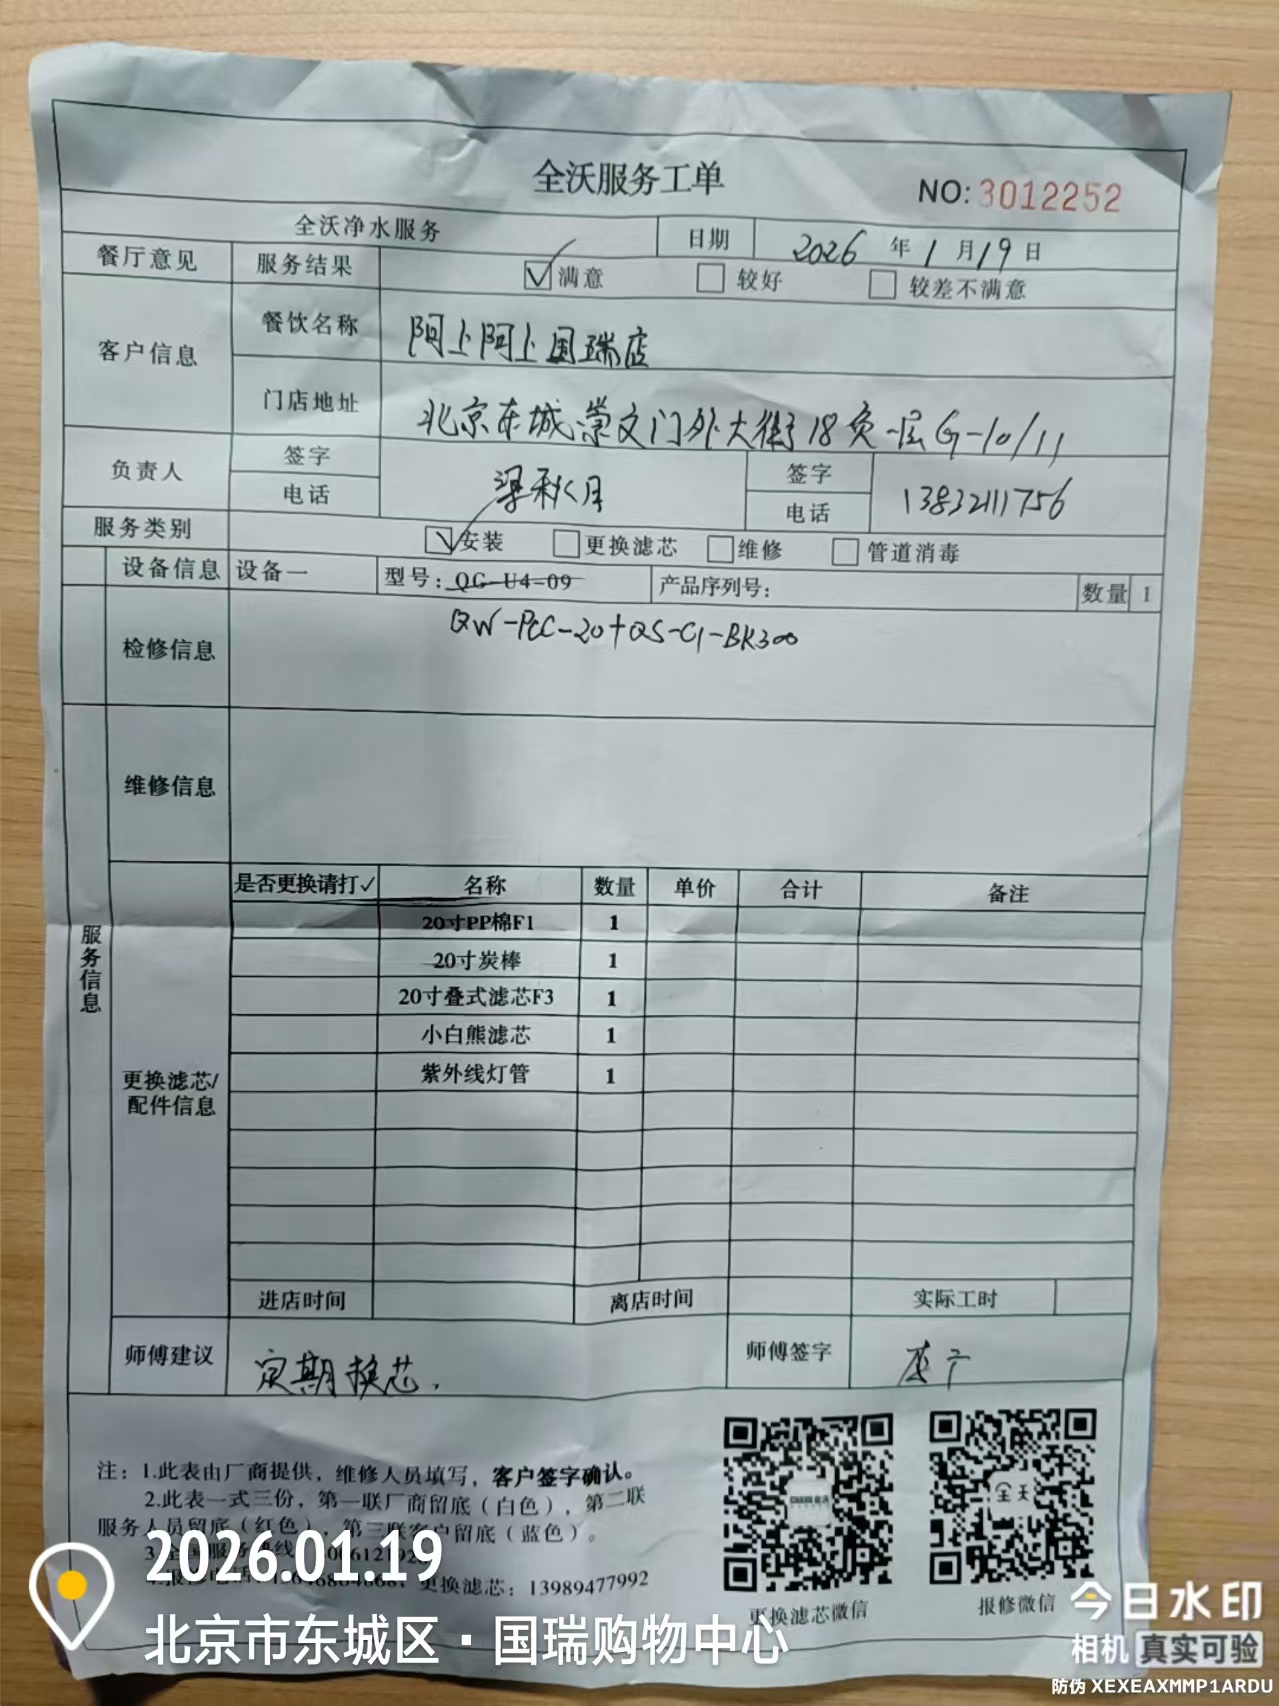 全沃服务工单
NO: 3012252
全沃净水服务 日期 2026年1月19日
餐厅意见 服务结果 ☑满意 □较好 □较差不满意
客户信息 餐饮名称 阿卜阿卜国瑞店
门店地址 北京东城崇文门外大街18负一层G-10/11
负责人 签字 电话 梁秋月 签字 电话 13832111756
服务类别 ☑安装 □更换滤芯 □维修 □管道消毒
设备信息 设备一 型号:QG-U4-09 产品序列号: 数量 1
检修信息 QW-PCC-20+QS-C1-BK300
维修信息
服务信息
更换滤芯/配件信息
是否更换请打✓ 名称 数量 单价 合计 备注
20寸PP棉F1 1
20寸炭棒 1
20寸叠式滤芯F3 1
小白熊滤芯 1
紫外线灯管 1
进店时间 离店时间 实际工时
师傅建议 定期换芯. 师傅签字
注:1.此表由厂商提供,维修人员填写,客户签字确认。
2.此表一式三份,第一联厂商留底(白色),第二联
服务人员留底(红色),第三联客户留底(蓝色)。
更换滤芯:13989477992
更换滤芯微信 报修微信
2026.01.19
北京市东城区·国瑞购物中心
今日水印
相机 真实可验
防伪 XEXEAXMMP1ARDU